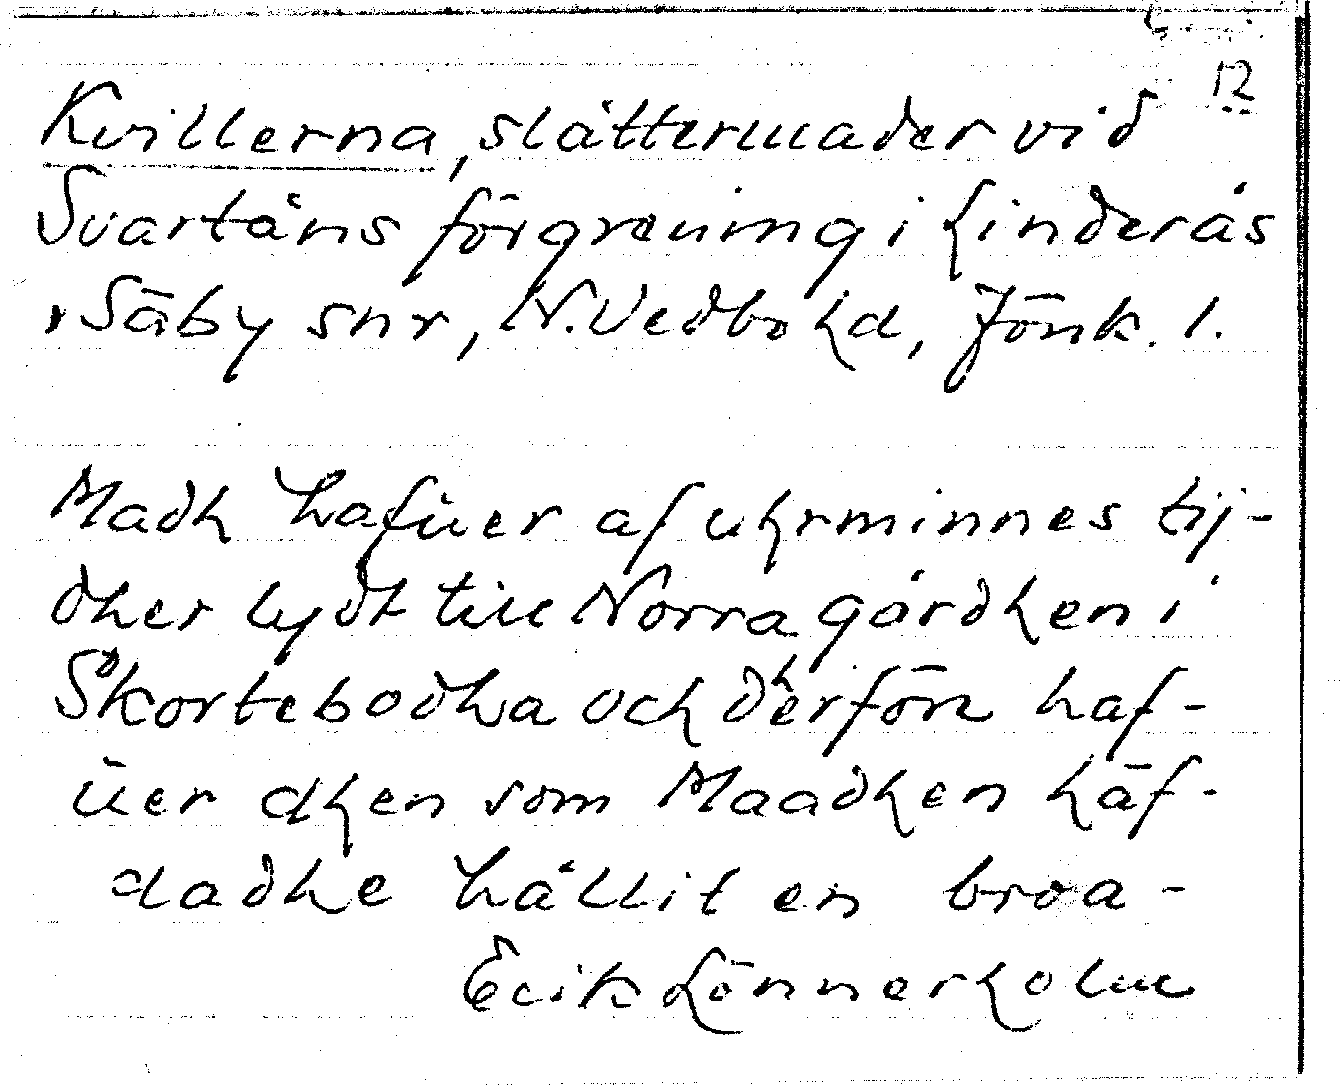 12
Kvillerna, slåttermader vid
Svartåns förgrening i Linderås
, Säby snr, N. Vedbo hd, Jönk. l.
Madh hafüer af uhrminnes tij-
dher lydt till Norra gårdhen i
Skortebodha och dherföre haf-
üer dhen som Maadhen häf-
dadhe hållit en broa -
Erik Lönnerholm